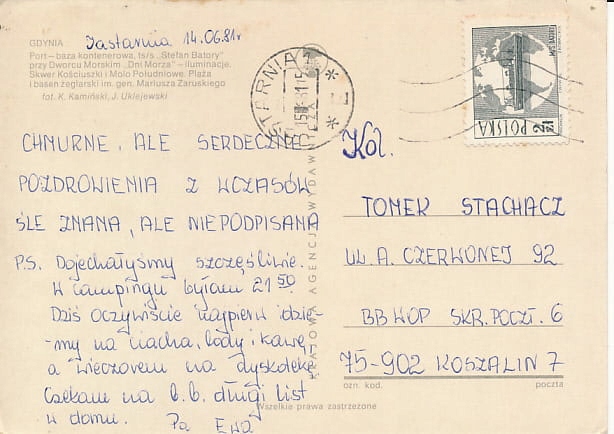 GDYNIA
Port – baza kontenerowa, ts/s „Stefan Batory"
przy Dworcu Morskim „Dni Morza" – iluminacje.
Skwer Kościuszki i Molo Południowe. Plaża
i basen żeglarski im. gen. Mariusza Zaruskiego
fot. K. Kamiński, J. Uklejewski
Jastarnia 14.06.81r
CHMURNE, ALE SERDECZNE
POZDROWIENIA Z WCZASÓW
ŚLE ZNANA, ALE NIEPODPISANA
P.S. Dojechałyśmy szczęśliwie.
W campingu byłam 21 50
Dziś oczywiście najpierw idzie-
my na ciacha, lody i kawę,
a wieczorem na dyskotekę
Czekam na b.b. długi list
w domu. Pa Ewa
KRAJOWA AGENCJA WYDAWNICZA
JASTARNIA
POLSKA
2 zł
Kol.
TOMEK STACHACZ
UL. A. CZERWONEJ 92
BB WOP SKR. POCZT. 6
75-902 KOSZALIN 7
ozn. kod.
poczta
Wszelkie prawa zastrzeżone